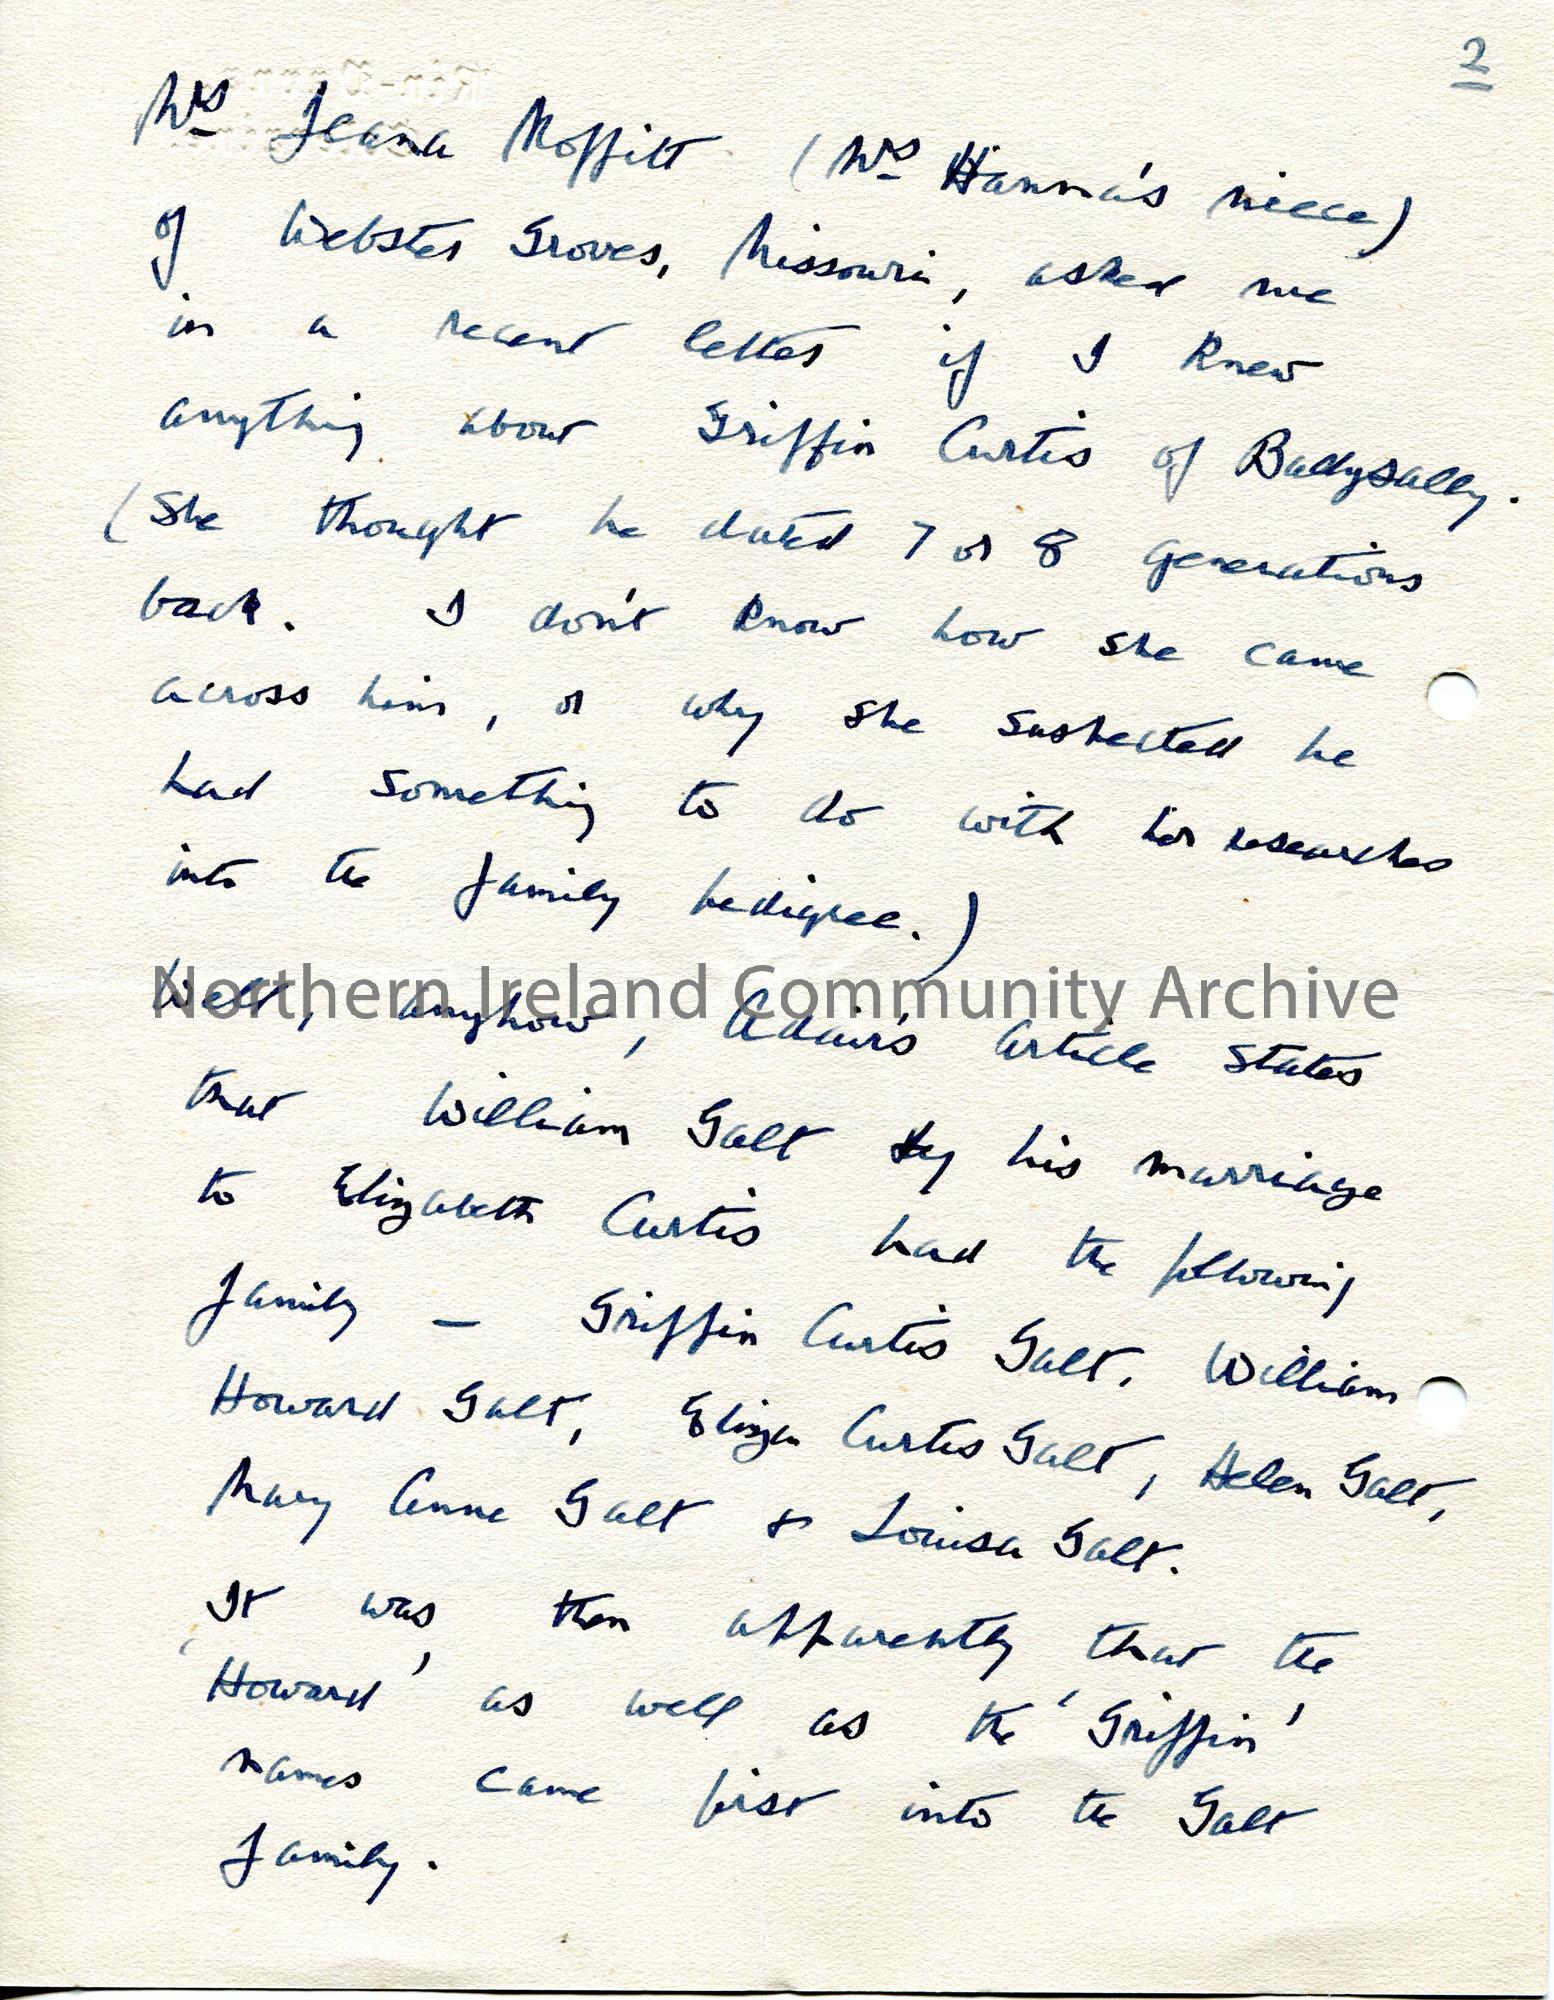 2
Mrs Jeana Moffitt (Mrs Hanna's niece)
of Webster Groves, Missouri, asked me
in a recent letter if I knew
anything about Griffin Curtis of Ballysally.
(She thought he dated 7 or 8 generations
back. I don't know how she came
across him, or why she suspected he
had something to do with her researches
into the family pedigree.)
Northern Ireland Community Archive
Well, anyhow, Adair's article states
that William Galt by his marriage
to Elizabeth Curtis had the following
family — Griffin Curtis Galt, William
Howard Galt, Eliza Curtis Galt, Helen Galt,
Mary Anne Galt & Louisa Galt.
It was, then apparently that the
'Howard' as well as the 'Griffin'
names came first into the Galt
family.